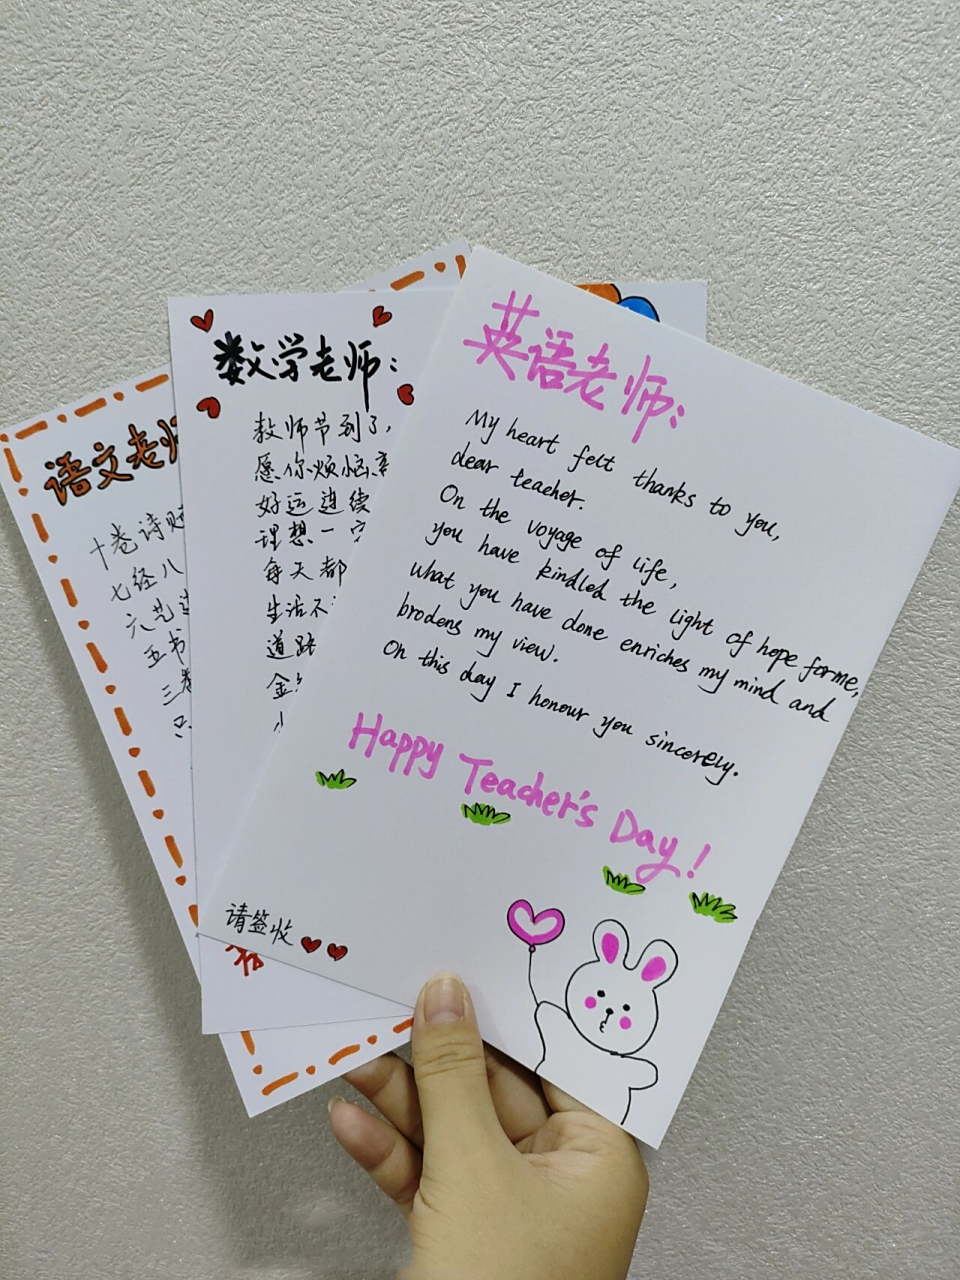 语文老师
十卷诗赋
七经八
六艺
五书
三卷
数学老师：
教师节到了，
愿你烦恼弃
好运连续
理想一定
每天都
生活不
道路
金
英语老师：
My heart felt thanks to you,
dear teacher.
On the voyage of life,
you have kindled the light of hope forme,
what you have done enriches my mind and
brodens my view.
On this day I honour you sincerely.
Happy Teacher's Day!
请签收